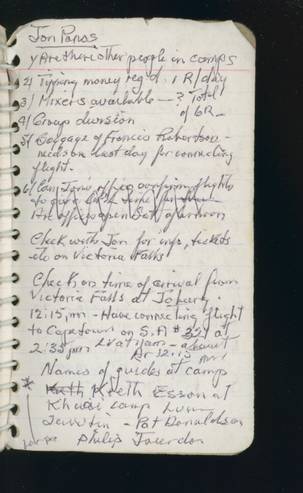 Jon Panos
1) Are there other people in camps
2) Tipping money req'd 1 R/day
3) Mixers available — ? Total of 6R
4) Group division
5) Baggage of Francis Robertson -
needs on last day for connecting
flight.
6) Can Jon's office
Are offices open Sat afternoon
Check with Jon for info, tickets
etc on Victoria Falls
Check on time of arrival from
Victoria Falls at Joburg.
12:15 pm - Have connecting flight
to Capetown on S.A # 327 at
2:35 pm
Names of guides at camp
Keith Esson at
Khwai camp
- Pat Donaldson
Philip